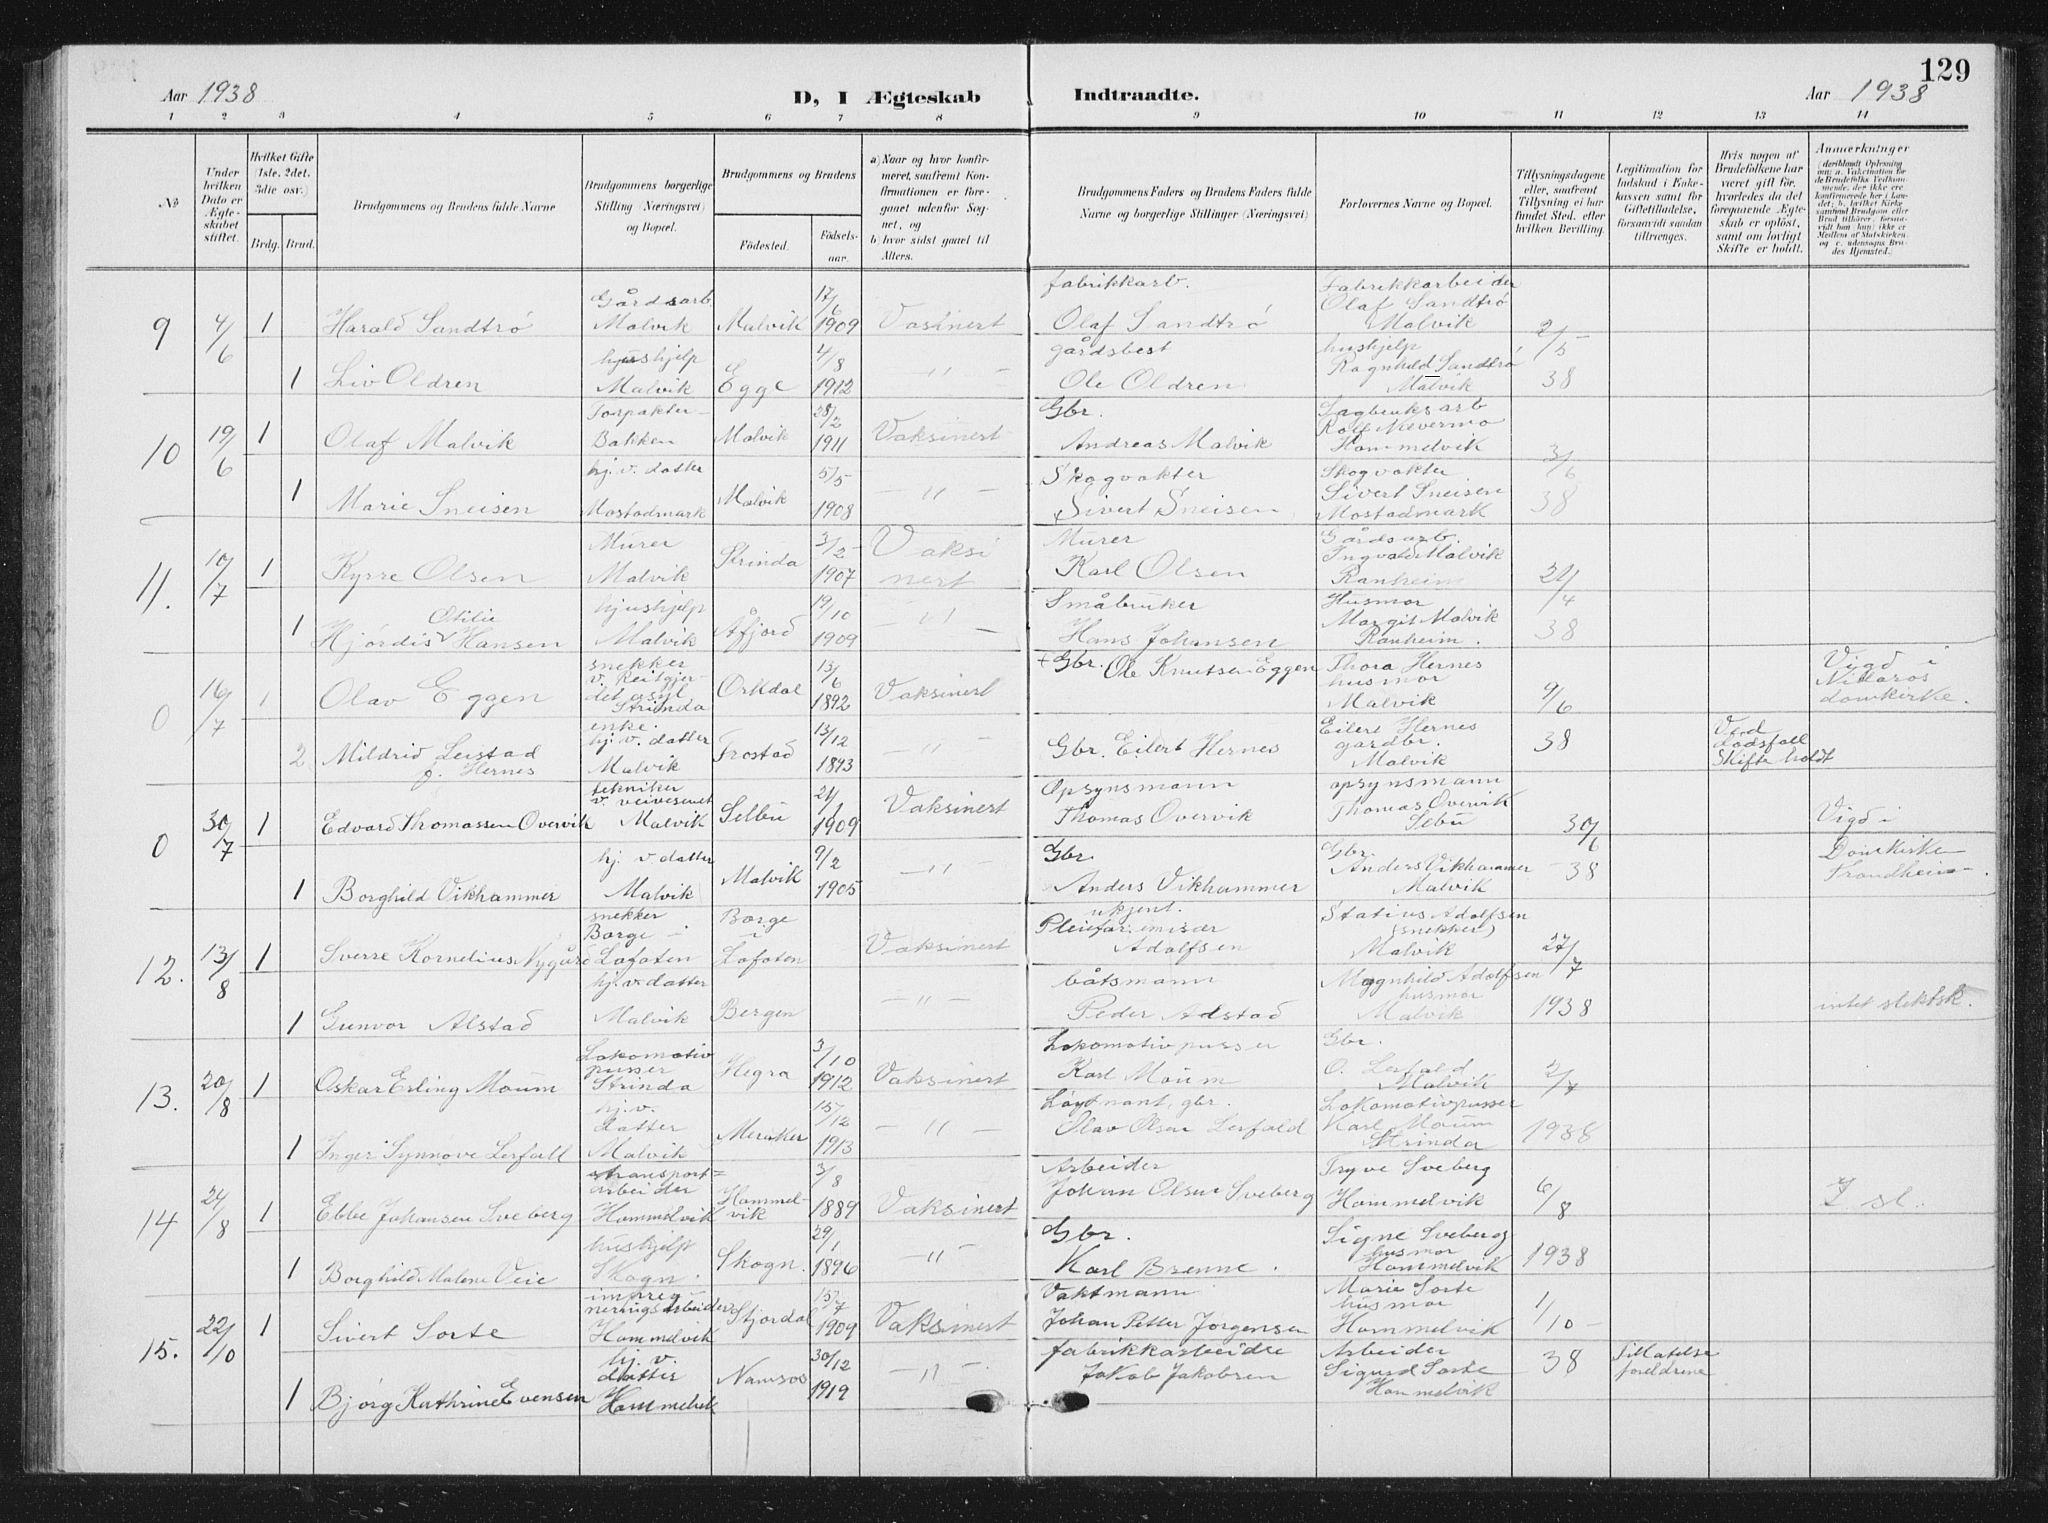 129
Aar 1938
D, I Ægteskab Indtraadte.
Aar 1938
1 2 3 4 5 6 7 8 9 10 11 12 13 14
No
Under hvilken Dato er Ægteskabet stiftet.
Hvilket Gifte (1ste, 2det, 3die osv.)
Brdg. Brud.
Brudgommens og Brudens fulde Navne
Brudgommens borgerlige Stilling (Næringsvei) og Bopæl.
Brudgommens og Brudens
Fødested. Fødselsaar.
a) Naar og hvor konfirmeret, saafremt Konfirmationen er foregaaet udenfor Sognet, og
b) hvor sidst gaaet til Alters.
Brudgommens Faders og Brudens Faders fulde Navne og borgerlige Stillinger (Næringsvei)
Forlovernes Navne og Bopæl.
Tillysningsdagene eller, saafremt Tillysning ei har fundet Sted, efter hvilken Bevilling.
Legitimation for Indskud i Enkekassen samt for Giftetilladelse, forsaavidt saadan tiltrænges.
Hvis nogen af Brudefolkene har været gift før, hvorledes da det foregaaende Ægteskab er opløst, samt om lovligt Skifte er holdt.
Anmerkninger
9 4/6 1 Harald Sandtrø Gårdsarb. Malvik Malvik 17/6 1909 Vasinert fabrikkarb. Olaf Sandtrø Fabrikkarbeider Olaf Sandtrø Malvik 2/5
1 Liv Oldren hushjelp Malvik Egge 4/8 1912 – " – gårdsbest Ole Oldren hushjelp Ragnhild Sandtrø Malvik 38
10 19/6 1 Olaf Malvik Forpakter Bakken Malvik 28/2 1911 Vaksinert Gbr. Andreas Malvik Sagbruksarb Rolf Nævermo Hommelvik 3/6
1 Marie Sneisen hj. v. datter Mostadmark Malvik 5/5 1908 – " – Skogvokter Sivert Sneisen Skogvokter Sivert Sneisen Mostadmark 38
11. 10/7 1 Kyrre Olsen Murer Malvik Strinda 3/2 1907 Vaksinert Murer Karl Olsen Gårdsarb. Ingvald Malvik Ranheim 21/4
1 Hjørdis Otilie Hansen hjushjelp Malvik Åfjord 19/10 1909 – " – Småbruker Hans Johansen Husmor Margit Malvik Ranheim. 38
0 16/7 1 Olav Eggen snekker v. Reitgjerdet asyl, Strinda Orkdal 13/6 1892 Vaksinert + Gbr. Ole Knutsen Eggen Thora Hernes husmor Malvik 9/6 Vigd i Nidaros domkirke.
2 Mildrid Leistad f. Hernes enke. hj. v. datter Malvik Frostad 13/12 1893 – " – Gbr. Eilert Hernes Eilert Hernes gardbr. Malvik 38 Ved dødsfall Skifte holdt
0 30/7 1 Edvard Thomassen Overvik tekniker v. veivesenet Malvik Selbu 21/1 1909 Vaksinert Opsynsmann Thomas Overvik opsynsmann Thomas Overvik Sebu 30/6 Vigd i Domkirke Trondheim
1 Borghild Vikhammer hj. v. datter Malvik Malvik 9/2 1905 – " – Gbr. Anders Vikhammer Gbr. Anders Vikhammer Malvik 38
12. 13/8 1 Sverre Kornelius Nygård snekker Borge i Lofoten Borge i Lofoten Vaksinert ukjent. Pleiefar: emisær Adolfsen Statius Adolfsen (snekker) Malvik 27/7
1 Gunvor Alstad hj. v. datter Malvik Bergen – " – båtsmann Peder Adstad Magnhild Adolfsen husmor Malvik 1938 intet slektsk.
13. 20/8 1 Oskar Erling Moum Lokomotivpusser Strinda Hegra 3/10 1912 Vaksinert Lokomotivpusser Karl Moum Gbr. O. Lerfald Malvik 2/7
1 Inger Synnøve Lerfall hj. v. datter Malvik Meraker 15/12 1913 – " – Løytnant, gbr. Olav Olsen Lerfald Lokomotivpusser Karl Moum Strinda 1938
14 24/8 1 Ebbe Johansen Sveberg transportarbeider Hommelvik Hommelvik 3/8 1889 Vaksinert Arbeider Johan Olsen Sveberg Tryve Sveberg Hommelvik 6/8 I sl.
1 Borghild Malene Veie hushjelp Skogn. Skogn. 29/1 1896 – " – Gbr. Karl Brenne. Signe Sveberg husmor Hommelvik 1938
15. 22/10 1 Sivert Sorte impregneringsarbeider Hommelvik Stjørdal 15/7 1909 Vaksinert Vaktmann Johan Petter Jørgensen Marie Sorte husmor Hommelvik 1/10
1 Bjørg Kathrine Evensen hj. v. datter Hommelvik Namsos 30/12 1919 – " – fabrikkarbeider Jakob Jakobsen Arbeider Sigurd Sorte Hommelvik 38 Tillatelse foreldrene